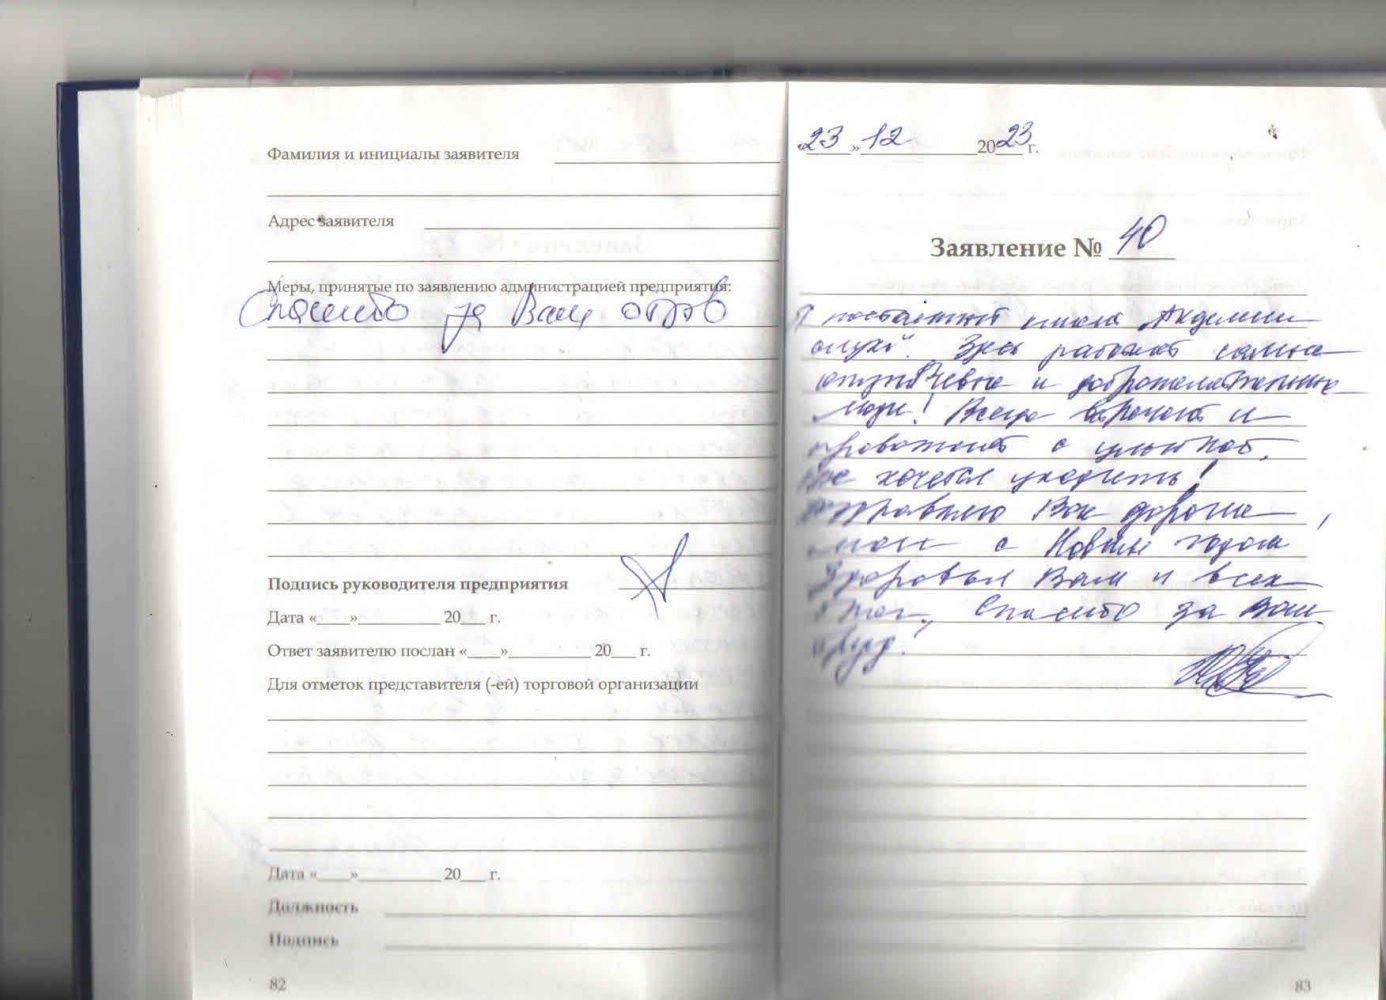 Фамилия и инициалы заявителя
Адрес заявителя
Меры, принятые по заявлению администрацией предприятия:
Спасибо за Ваш отзыв
Подпись руководителя предприятия
Дата «___»__________ 20___ г.
Ответ заявителю послан «___»__________ 20___ г.
Для отметок представителя (-ей) торговой организации
Дата «___»__________ 20___ г.
Должность
Подпись
82
«23» 12 2023 г.
Заявление № 40
Я постоянный Академии
Здесь работают самые
отзывчивые и доброжелательные
люди! Всегда встречают и
провожают с улыбкой.
Не хочется уходить!
Поздравляю Вас дорогие
мои с Новым годом
Здоровья Вам и всех
благ, Спасибо за Ваш
труд!
83